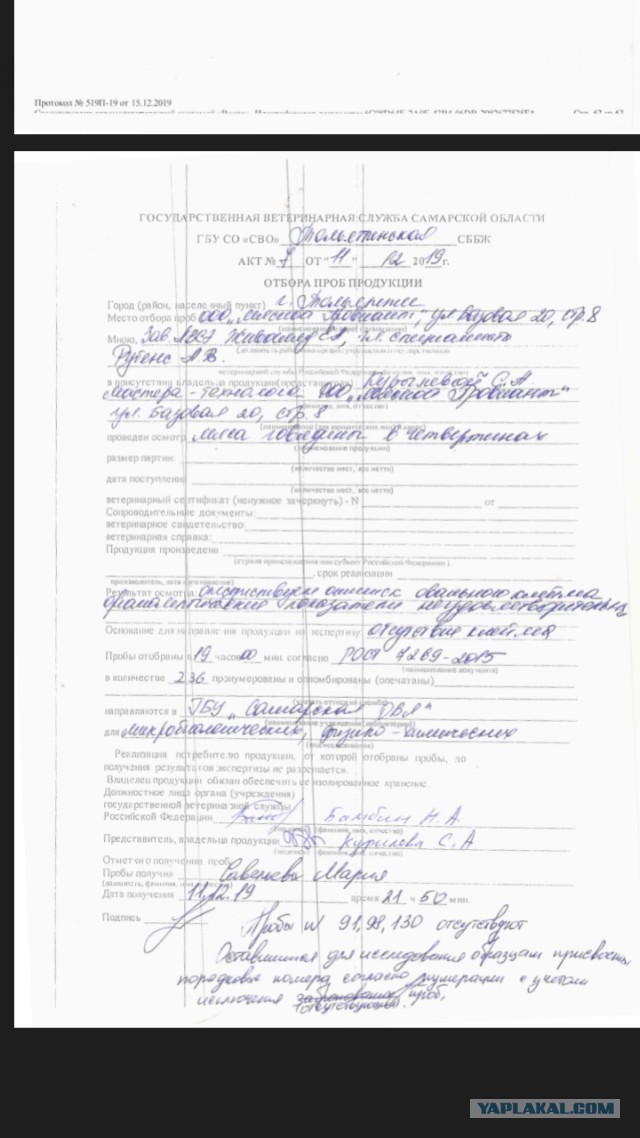 Протокол № 519П-19 от 15.12.2019
ГОСУДАРСТВЕННАЯ ВЕТЕРИНАРНАЯ СЛУЖБА САМАРСКОЙ ОБЛАСТИ
ГБУ СО «СВО» Тольяттинская СББЖ
АКТ № ОТ "11" 12 2019г.
ОТБОРА ПРОБ ПРОДУКЦИИ
Город (район, населенный пункт) г. Тольятти
Место отбора проб ООО "Мясной Провиант", ул. Базовая 20, стр. 8
Мною, Зав. гл. специалист
в присутствии владельца продукции(представителя) С.А
Мастера-технолога ООО "Мясной Провиант"
ул. Базовая 20, стр. 8
проведен осмотр мяса говядины в четвертинах
(наименование продукции)
размер партии:
(количество мест, вес нетто)
дата поступления
(количество мест, вес нетто)
ветеринарный сертификат (ненужное зачеркнуть) - N от
Сопроводительные документы:
ветеринарное свидетельство:
ветеринарная справка:
Продукция произведена
(страна происхождения или субъект Российской Федерации)
, срок реализации
производитель, дата изготовления)
Результат осмотра: отсутствует оттиск овального клейма
органолептические показатели неудовлетворительны
Основание для направления продукции на экспертизу отсутствие клейма
Пробы отобраны в 19 часов 00 мин. согласно ГОСТ 7269-2015
(наименование документа)
в количестве 236 пронумерованы и опломбированы (опечатаны)
направляются в ГБУ "Самарская ОВЛ"
для микробиологических, физико-химических
Реализация потребителю продукции, от которой отобраны пробы, до
получения результатов экспертизы не разрешается.
Владелец продукции обязан обеспечить ее изолированное хранение.
Должностное лицо органа (учреждения)
государственной ветеринарной службы
Российской Федерации Бамбин Н.А
Представитель, владельца продукции Курилева С.А
Отметки о получении проб
Пробы получил Мария
Дата получения 11.12.19 время 21 ч 50 мин.
Подпись
Пробы № 91, 98, 130 отсутствуют
Оставшимся для исследования образцам присвоены
порядковые номера согласно нумерации с учетом
исключения отсутствующих проб.
YAPLAKAL.COM